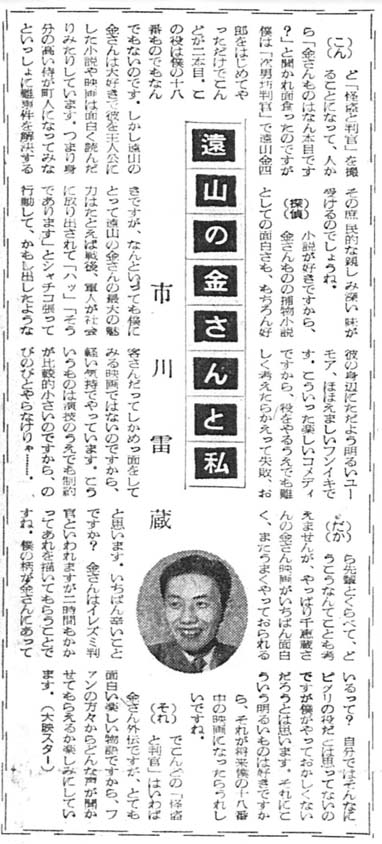 遠山の金さんと私
市川雷蔵
(こん)と「怪盗と判官」を撮
ることになって、人か
ら「金さんものはなん本目です
か?」と聞かれ面食ったのですが
僕は「次男坊判官」で遠山金四
郎をはじめてや
っただけでこん
どが二本目。こ
の役は僕の十八
番ものでもなん
でもないのです。しかし遠山の
金さんは大好きで彼を主人公に
した小説や映画は面白く読んだ
りみたりしています。つまり身
分の高い侍が町人になってみな
といっしょに難事件を解決する
その庶民的な親しみ深い味が
受けるのでしょうね。
(探偵)小説が好きですから、
金さんものの捕物小説
としての面白さも、もちろん好
きですが、なんといっても僕に
とって遠山の金さんの最大の魅
力はたとえば戦後、軍人が社会
に放り出されて「ハッ」「そう
であります」とシャチコ張って
行動して、かもし出したような
彼の身辺にただよう明るいユー
モア、ほほえましいフンイキで
す。こういった楽しいコメディ
ですから、役をやるうえでも難
しく考えたらかえって失敗、お
客さんだってしかめっ面をして
みる映画ではないのですから、
軽い気持でやっています。こう
いうものは演技のうえでも制約
が比較的小さいのですから、の
びのびとやらなけりゃ……。
(だか)ら先輩とくらべて、ど
うこうなんてことも考
えませんが、やっぱり千恵蔵さ
んの金さん映画がいちばん面白
く、またうまくやっておられる
と思います。いちばん辛いこと
ですか?　金さんはイレズミ判
官といわれますが二時間もかか
ってあれを描いてもらうことで
すね。僕の柄が金さんにあって
いるって?　自分ではそんなに
ピタリの役だとは思ってないの
ですが僕がやっておかしくない
だろうとは思います。それにこ
ういう明るいものは好きですか
ら、それが将来僕の十八番
中の映画になったらうれし
いですね。
(それ)でこんどの「怪盗
と判官」はいわば
金さん外伝ですが、とても
面白い楽しい物語ですから、フ
ァンの方々からどんな声が聞か
せてもらえるか楽しみにしてい
ます。(大映スター)